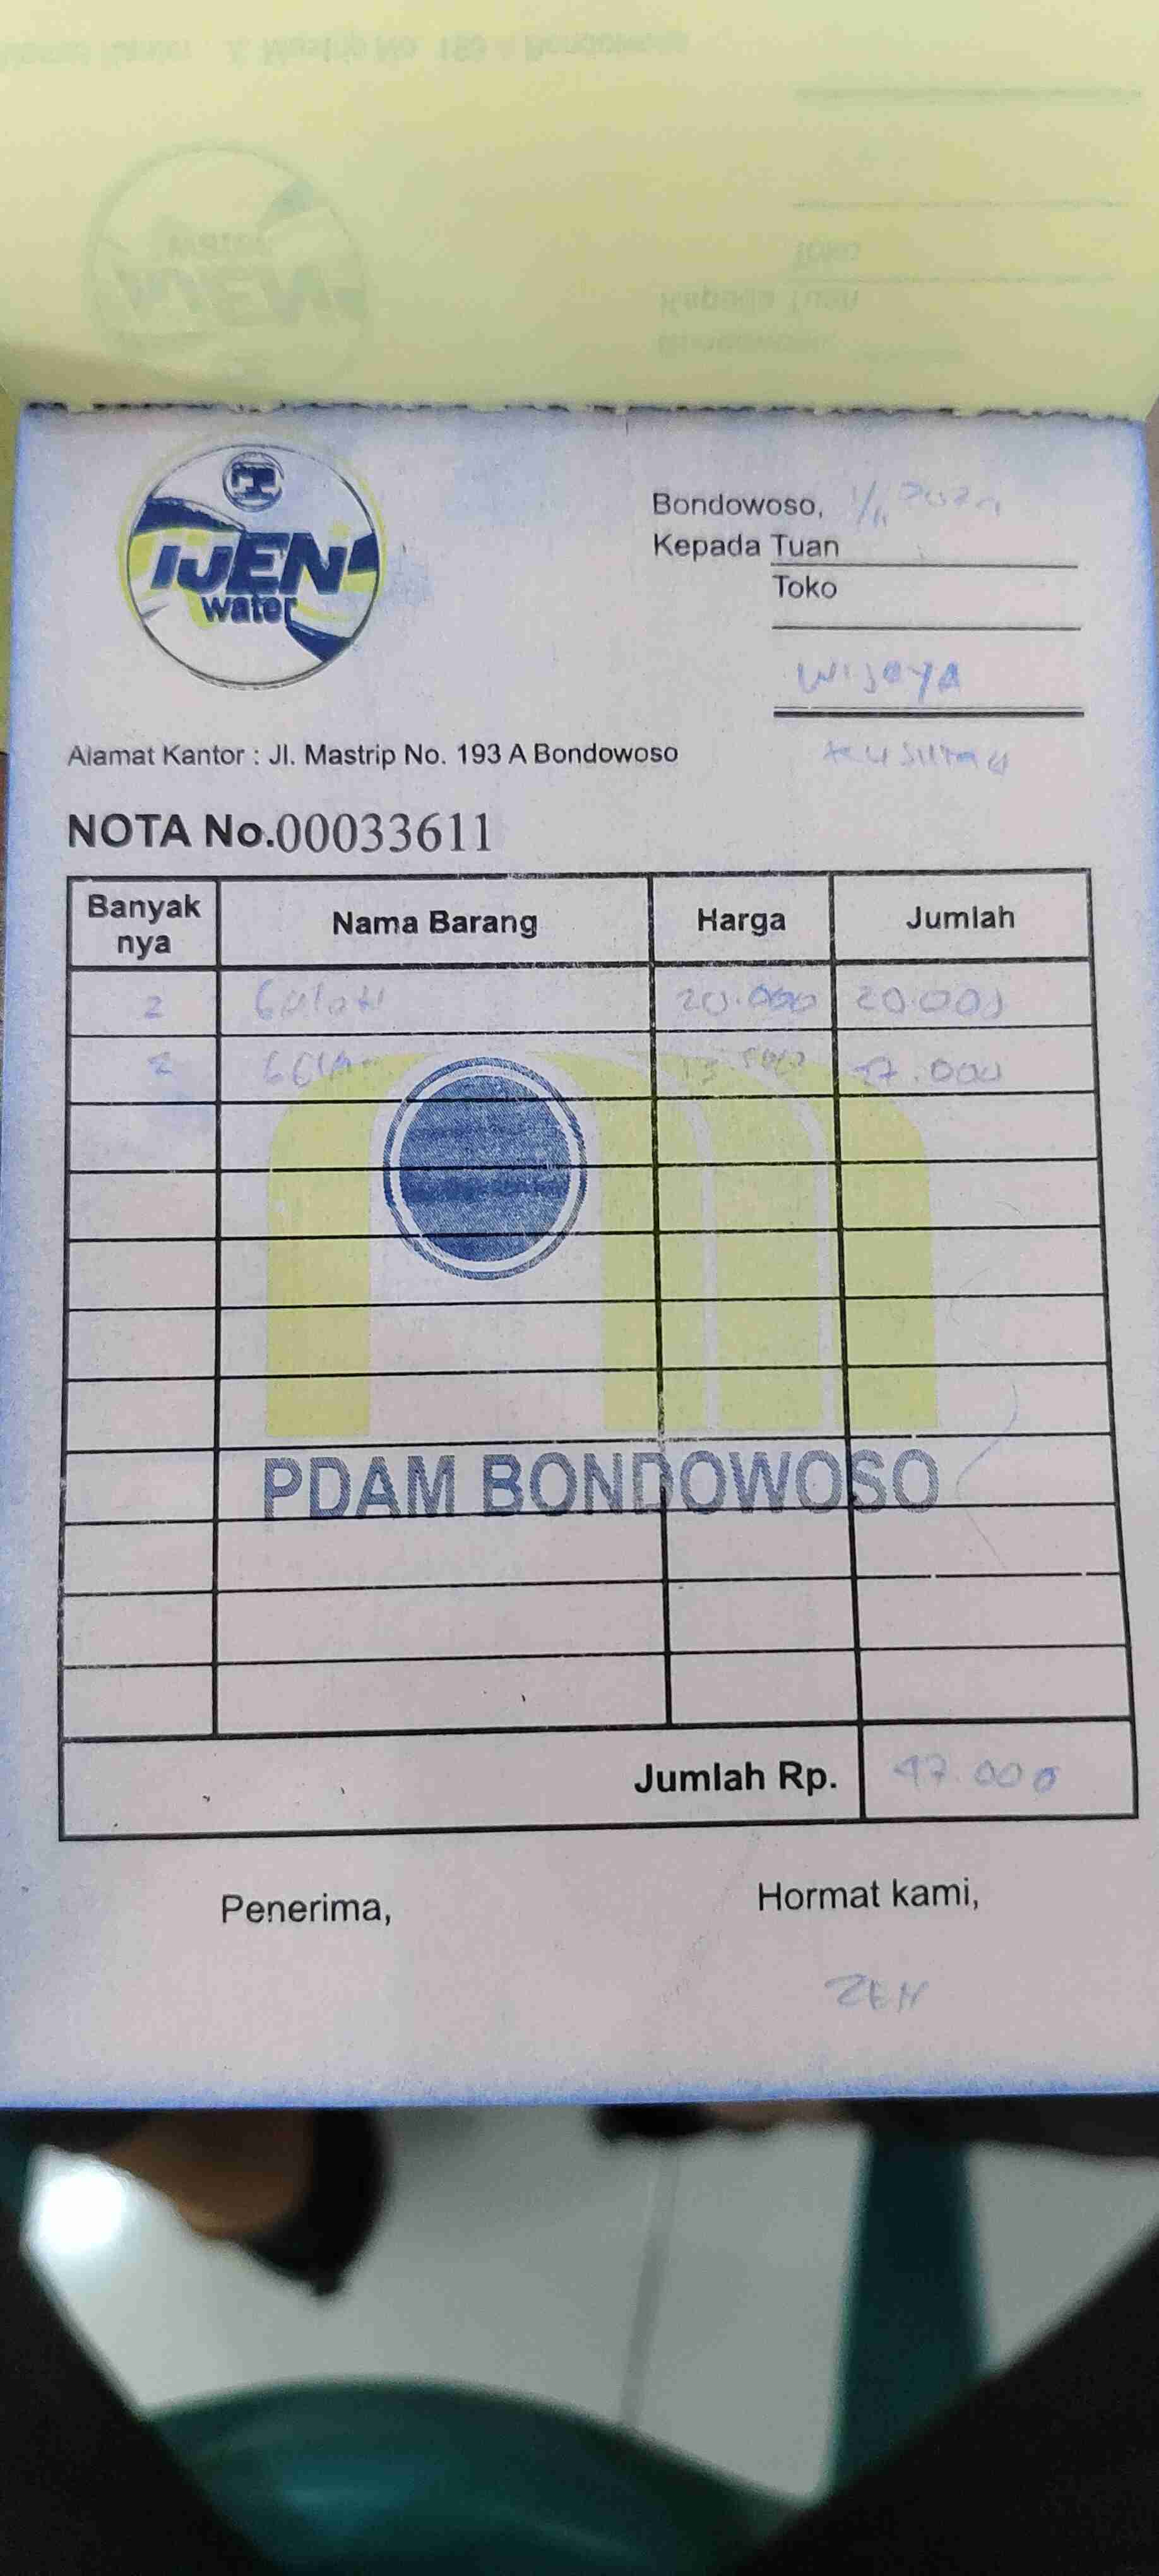 IJEN
water
Bondowoso, 1/11 2024
Kepada Tuan
Toko
WIJAYA
Alamat Kantor : Jl. Mastrip No. 193 A Bondowoso
NOTA No.00033611
Banyak nya Nama Barang Harga Jumlah
2 20.000 20.000
2 27.000
PDAM BONDOWOSO
Jumlah Rp. 47.000
Penerima, Hormat kami,
ZEN